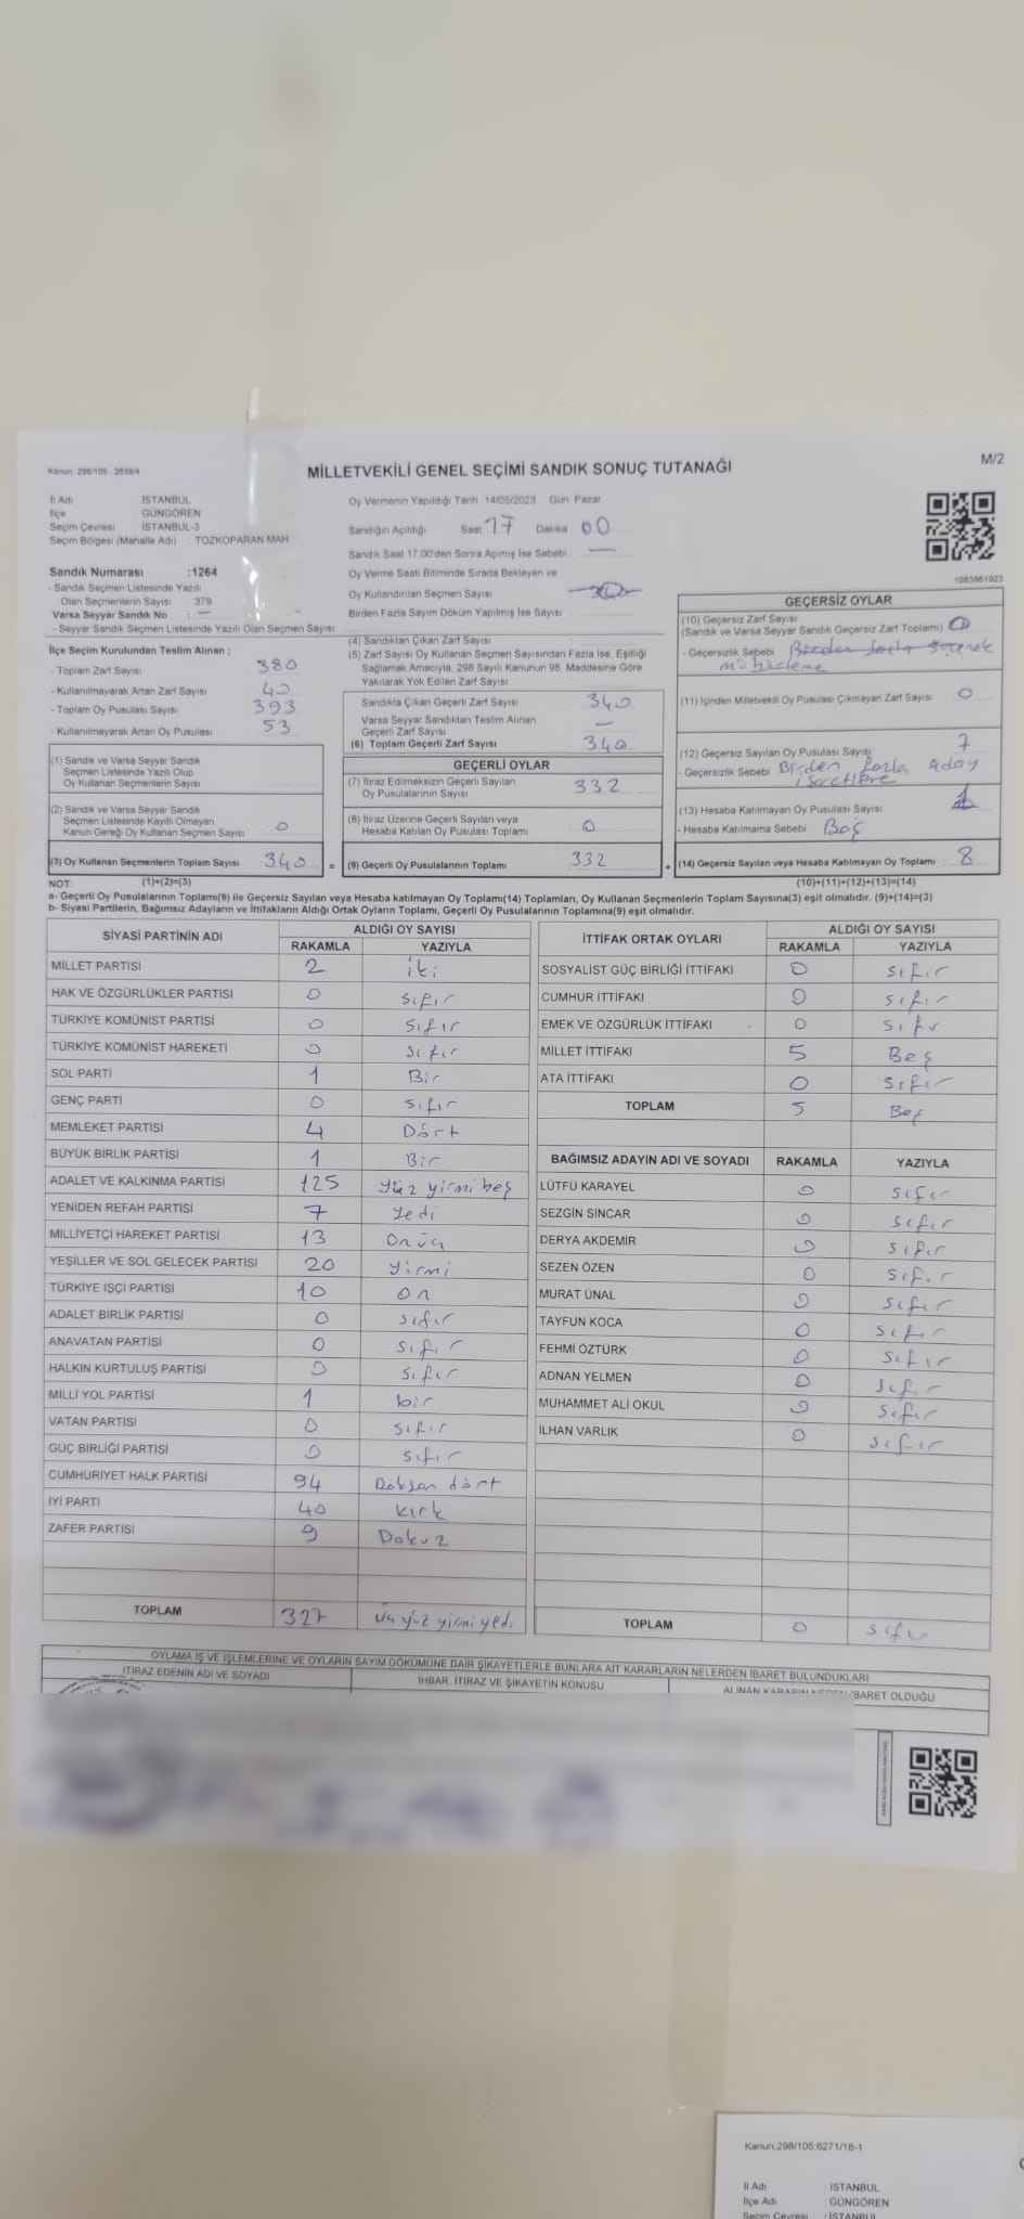 Kanun: 298/105
MİLLETVEKİLİ GENEL SEÇİMİ SANDIK SONUÇ TUTANAĞI
M/2
İl Adı İSTANBUL
İlçe GÜNGÖREN
Seçim Çevresi İSTANBUL-3
Seçim Bölgesi (Mahalle Adı) TOZKOPARAN MAH
Oy Vermenin Yapıldığı Tarih 14/05/2023 Gün: Pazar
Sandığın Açıldığı Saat 17 Dakika 00
Sandık Saat 17.00'den Sonra Açılmış İse Sebebi —
Oy Verme Saati Bitiminde Sırada Bekleyen ve
Oy Kullandırılan Seçmen Sayısı
Birden Fazla Sayım Döküm Yapılmış İse Sayısı
Sandık Numarası :1264
- Sandık Seçmen Listesinde Yazılı
Olan Seçmenlerin Sayısı 379
Varsa Seyyar Sandık No : —
- Seyyar Sandık Seçmen Listesinde Yazılı Olan Seçmen Sayısı
İlçe Seçim Kurulundan Teslim Alınan :
- Toplam Zarf Sayısı 380
- Kullanılmayarak Artan Zarf Sayısı 40
- Toplam Oy Pusulası Sayısı 393
- Kullanılmayarak Artan Oy Pusulası 53
(1) Sandık ve Varsa Seyyar Sandık
Seçmen Listesinde Yazılı Olup
Oy Kullanan Seçmenlerin Sayısı
(2) Sandık ve Varsa Seyyar Sandık
Seçmen Listesinde Kayıtlı Olmayan
Kanun Gereği Oy Kullanan Seçmen Sayısı 0
(3) Oy Kullanan Seçmenlerin Toplam Sayısı 340 =
(4) Sandıktan Çıkan Zarf Sayısı
(5) Zarf Sayısı Oy Kullanan Seçmen Sayısından Fazla İse, Eşitliği
Sağlamak Amacıyla, 298 Sayılı Kanunun 98. Maddesine Göre
Yakılarak Yok Edilen Zarf Sayısı
Sandıkta Çıkan Geçerli Zarf Sayısı 340
Varsa Seyyar Sandıktan Teslim Alınan
Geçerli Zarf Sayısı —
(6) Toplam Geçerli Zarf Sayısı 340
GEÇERLİ OYLAR
(7) İtiraz Edilmeksizin Geçerli Sayılan
Oy Pusulalarının Sayısı 332
(8) İtiraz Üzerine Geçerli Sayılan veya
Hesaba Katılan Oy Pusulası Toplamı 0
(9) Geçerli Oy Pusulalarının Toplamı 332 +
GEÇERSİZ OYLAR
(10) Geçersiz Zarf Sayısı
(Sandık ve Varsa Seyyar Sandık Geçersiz Zarf Toplamı) 0
- Geçersizlik Sebebi Birden fazla
(11) İçinden Milletvekili Oy Pusulası Çıkmayan Zarf Sayısı 0
(12) Geçersiz Sayılan Oy Pusulası Sayısı 7
- Geçersizlik Sebebi Birden fazla aday
(13) Hesaba Katılmayan Oy Pusulası Sayısı 1
- Hesaba Katılmama Sebebi Boş
(14) Geçersiz Sayılan veya Hesaba Katılmayan Oy Toplamı 8
NOT: (1)+(2)=(3)
(10)+(11)+(12)+(13)=(14)
a- Geçerli Oy Pusulalarının Toplamı(9) ile Geçersiz Sayılan veya Hesaba katılmayan Oy Toplamı(14) Toplamları, Oy Kullanan Seçmenlerin Toplam Sayısına(3) eşit olmalıdır. (9)+(14)=(3)
b- Siyasi Partilerin, Bağımsız Adayların ve İttifakların Aldığı Ortak Oyların Toplamı, Geçerli Oy Pusulalarının Toplamına(9) eşit olmalıdır.
SİYASİ PARTİNİN ADI ALDIĞI OY SAYISI
RAKAMLA YAZIYLA
MİLLET PARTİSİ 2 iki
HAK VE ÖZGÜRLÜKLER PARTİSİ 0 sıfır
TÜRKİYE KOMÜNİST PARTİSİ 0 sıfır
TÜRKİYE KOMÜNİST HAREKETİ 0 sıfır
SOL PARTİ 1 Bir
GENÇ PARTİ 0 sıfır
MEMLEKET PARTİSİ 4 Dört
BÜYÜK BİRLİK PARTİSİ 1 Bir
ADALET VE KALKINMA PARTİSİ 125 yüz yirmi beş
YENİDEN REFAH PARTİSİ 7 yedi
MİLLİYETÇİ HAREKET PARTİSİ 13 onüç
YEŞİLLER VE SOL GELECEK PARTİSİ 20 yirmi
TÜRKİYE İŞÇİ PARTİSİ 10 on
ADALET BİRLİK PARTİSİ 0 sıfır
ANAVATAN PARTİSİ 0 sıfır
HALKIN KURTULUŞ PARTİSİ 0 sıfır
MİLLİ YOL PARTİSİ 1 bir
VATAN PARTİSİ 0 sıfır
GÜÇ BİRLİĞİ PARTİSİ 0 sıfır
CUMHURİYET HALK PARTİSİ 94 Doksan dört
İYİ PARTİ 40 kırk
ZAFER PARTİSİ 9 Dokuz
TOPLAM 327 üç yüz yirmi yedi
İTTİFAK ORTAK OYLARI ALDIĞI OY SAYISI
RAKAMLA YAZIYLA
SOSYALİST GÜÇ BİRLİĞİ İTTİFAKI 0 sıfır
CUMHUR İTTİFAKI 0 sıfır
EMEK VE ÖZGÜRLÜK İTTİFAKI 0 sıfır
MİLLET İTTİFAKI 5 Beş
ATA İTTİFAKI 0 sıfır
TOPLAM 5 Beş
BAĞIMSIZ ADAYIN ADI VE SOYADI RAKAMLA YAZIYLA
LÜTFÜ KARAYEL 0 sıfır
SEZGİN SİNCAR 0 sıfır
DERYA AKDEMİR 0 sıfır
SEZEN ÖZEN 0 sıfır
MURAT ÜNAL 0 sıfır
TAYFUN KOCA 0 sıfır
FEHMİ ÖZTÜRK 0 sıfır
ADNAN YELMEN 0 sıfır
MUHAMMET ALİ OKUL 0 sıfır
İLHAN VARLIK 0 sıfır
TOPLAM 0 sıfır
OYLAMA İŞ VE İŞLEMLERİNE VE OYLARIN SAYIM DÖKÜMÜNE DAİR ŞİKAYETLERLE BUNLARA AİT KARARLARIN NELERDEN İBARET BULUNDUKLARI
İTİRAZ EDENİN ADI VE SOYADI
İHBAR, İTİRAZ VE ŞİKAYETİN KONUSU
ALINAN KARARIN NEDEN İBARET OLDUĞU
Kanun:298/105:6271/16-1
İl Adı İSTANBUL
İlçe Adı GÜNGÖREN
Seçim Çevresi : İSTANBUL